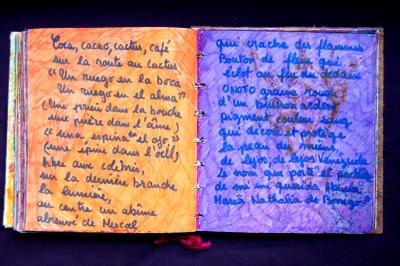 Coca, cacao, cactus, café
sur la route au cactus
"Un ruego en la boca
Un ruego en el alma"
(Une prière dans la bouche
une prière dans l'âme)
"una espina en el ojo"
(une épine dans l'œil)
Arbre aux colibris,
sur la dernière branche
la lumière,
au centre un abîme
abreuvé de Mescal
qui crache des flammes
Bouton de fleur qui
éclot au feu du dedans
ONOTO graine rouge
d'un buisson ardent
Pigment couleur sang
qui décore et protège
la peau de
de lejos, de lejos Venezuela
le nom que porte
de mi querida Abuela
Maria Nathalia de